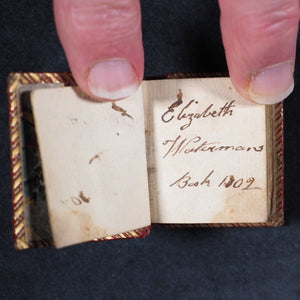 Elizabeth
Watermans
Book 1802